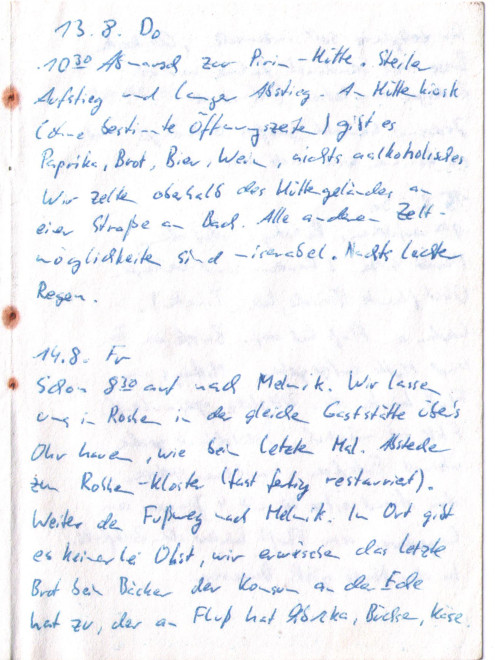 13.8. Do
10³⁰ Abmarsch zur Pirin-Hütte. Steiler
Aufstieg und langer Abstieg. Am Hüttenkiosk
(ohne bestimmte Öffnungszeiten) gibt es
Paprika, Brot, Bier, Wein, nichts aalkoholisches
Wir zelten oberhalb des Hüttengeländes an
einer Straße am Bach. Alle anderen Zelt-
möglichkeiten sind miserabel. Nachts leichter
Regen.
14.8. Fr
Schon 8³⁰ auf nach Melnik. Wir lassen
uns in Roshen in der gleichen Gaststätte über's
Ohr hauen, wie beim letzten Mal. Abstecher
zum Roshen-Kloster (fast fertig restauriert).
Weiter den Fußweg nach Melnik. Im Ort gibt
es keinerlei Obst, wir erwischen das letzte
Brot beim Bäcker der Konsum an der Ecke
hat zu, der am Fluß hat Büchsen, Käse